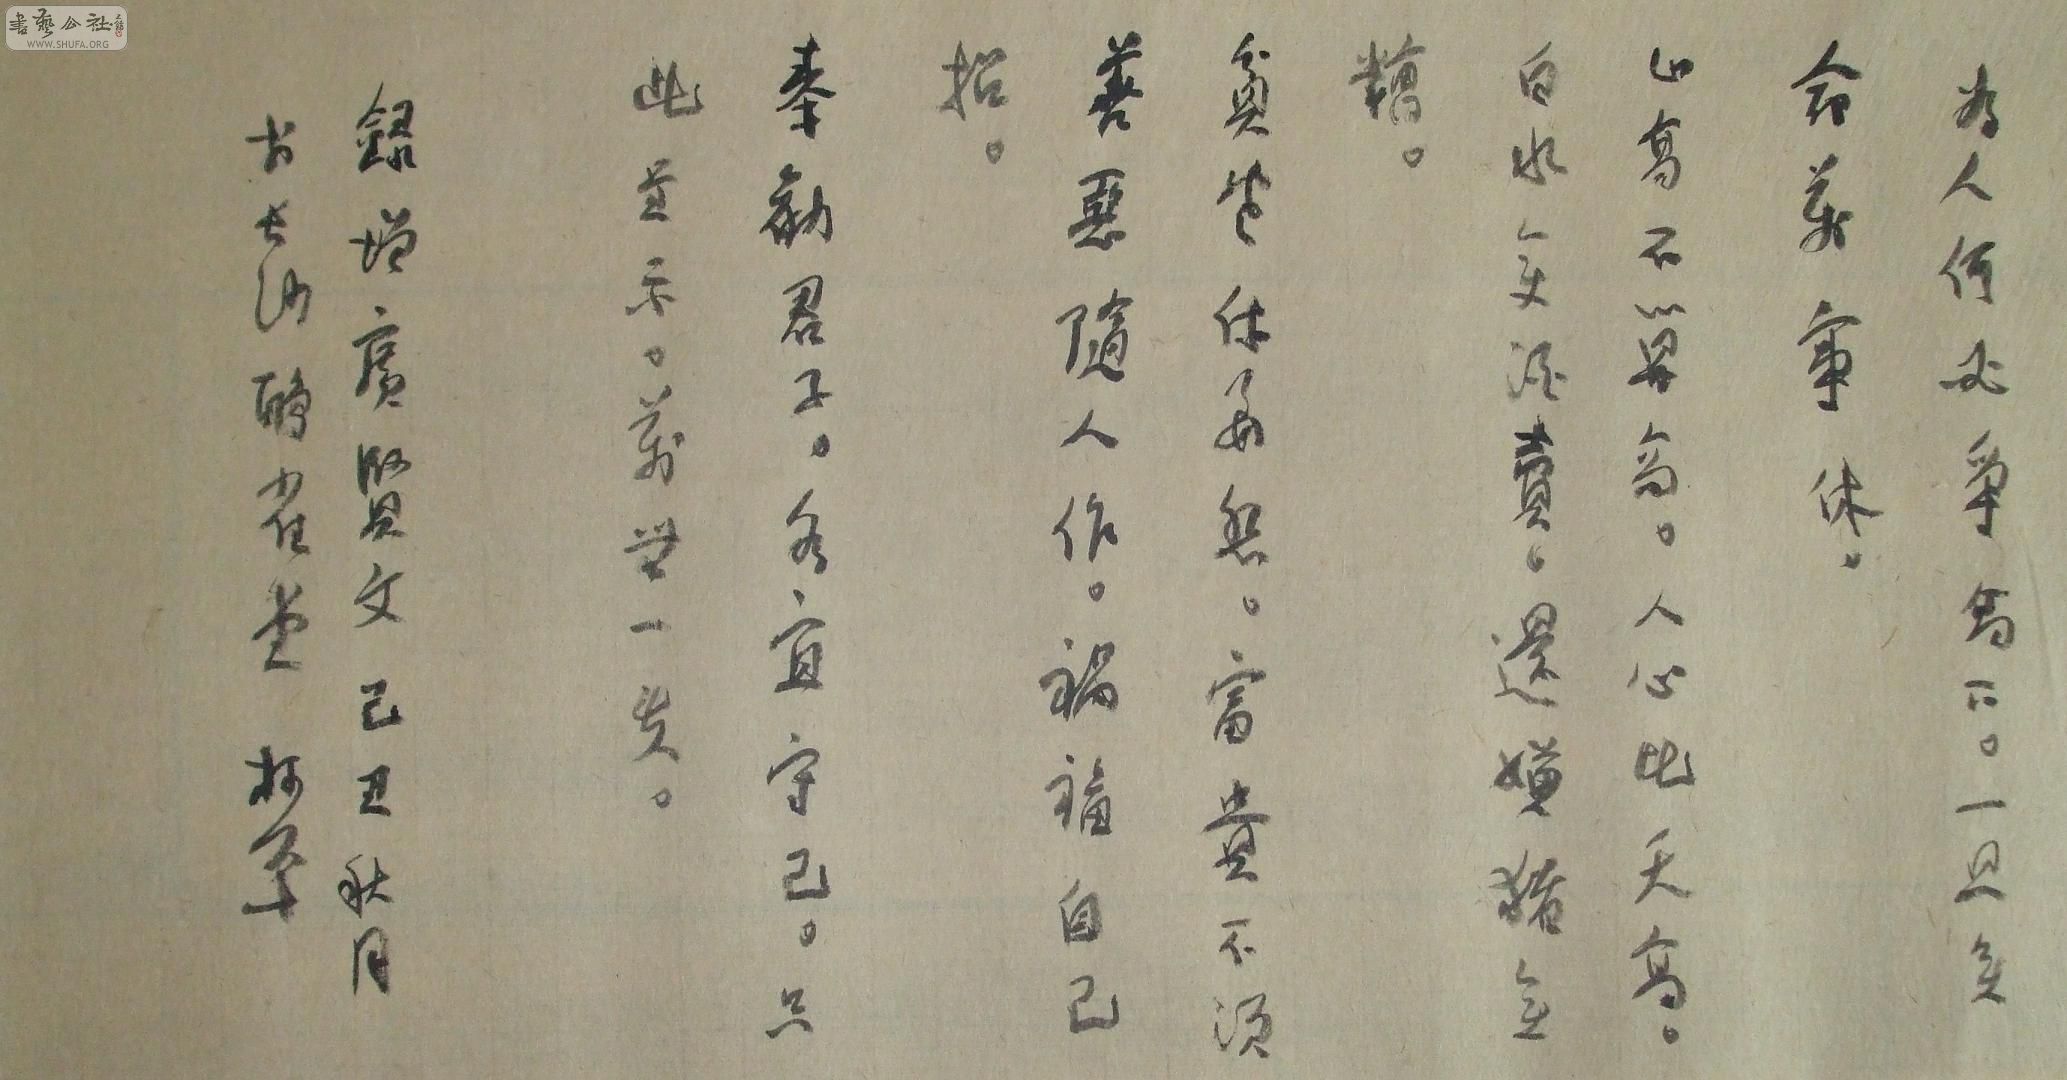 為人何必爭高下。一旦無
命萬事休。
山高不算高。人心比天高。
白水變酒賣。還嫌豬無
糟。
貧窮休要怨。富貴不須
善惡隨人作。禍福自己
招。
奉勸君子。各宜守己。只
此呈示。萬無一失。
錄增廣賢文己丑秋月
書長沙聽雀堂
書藝公社
WWW.SHUFA.ORG